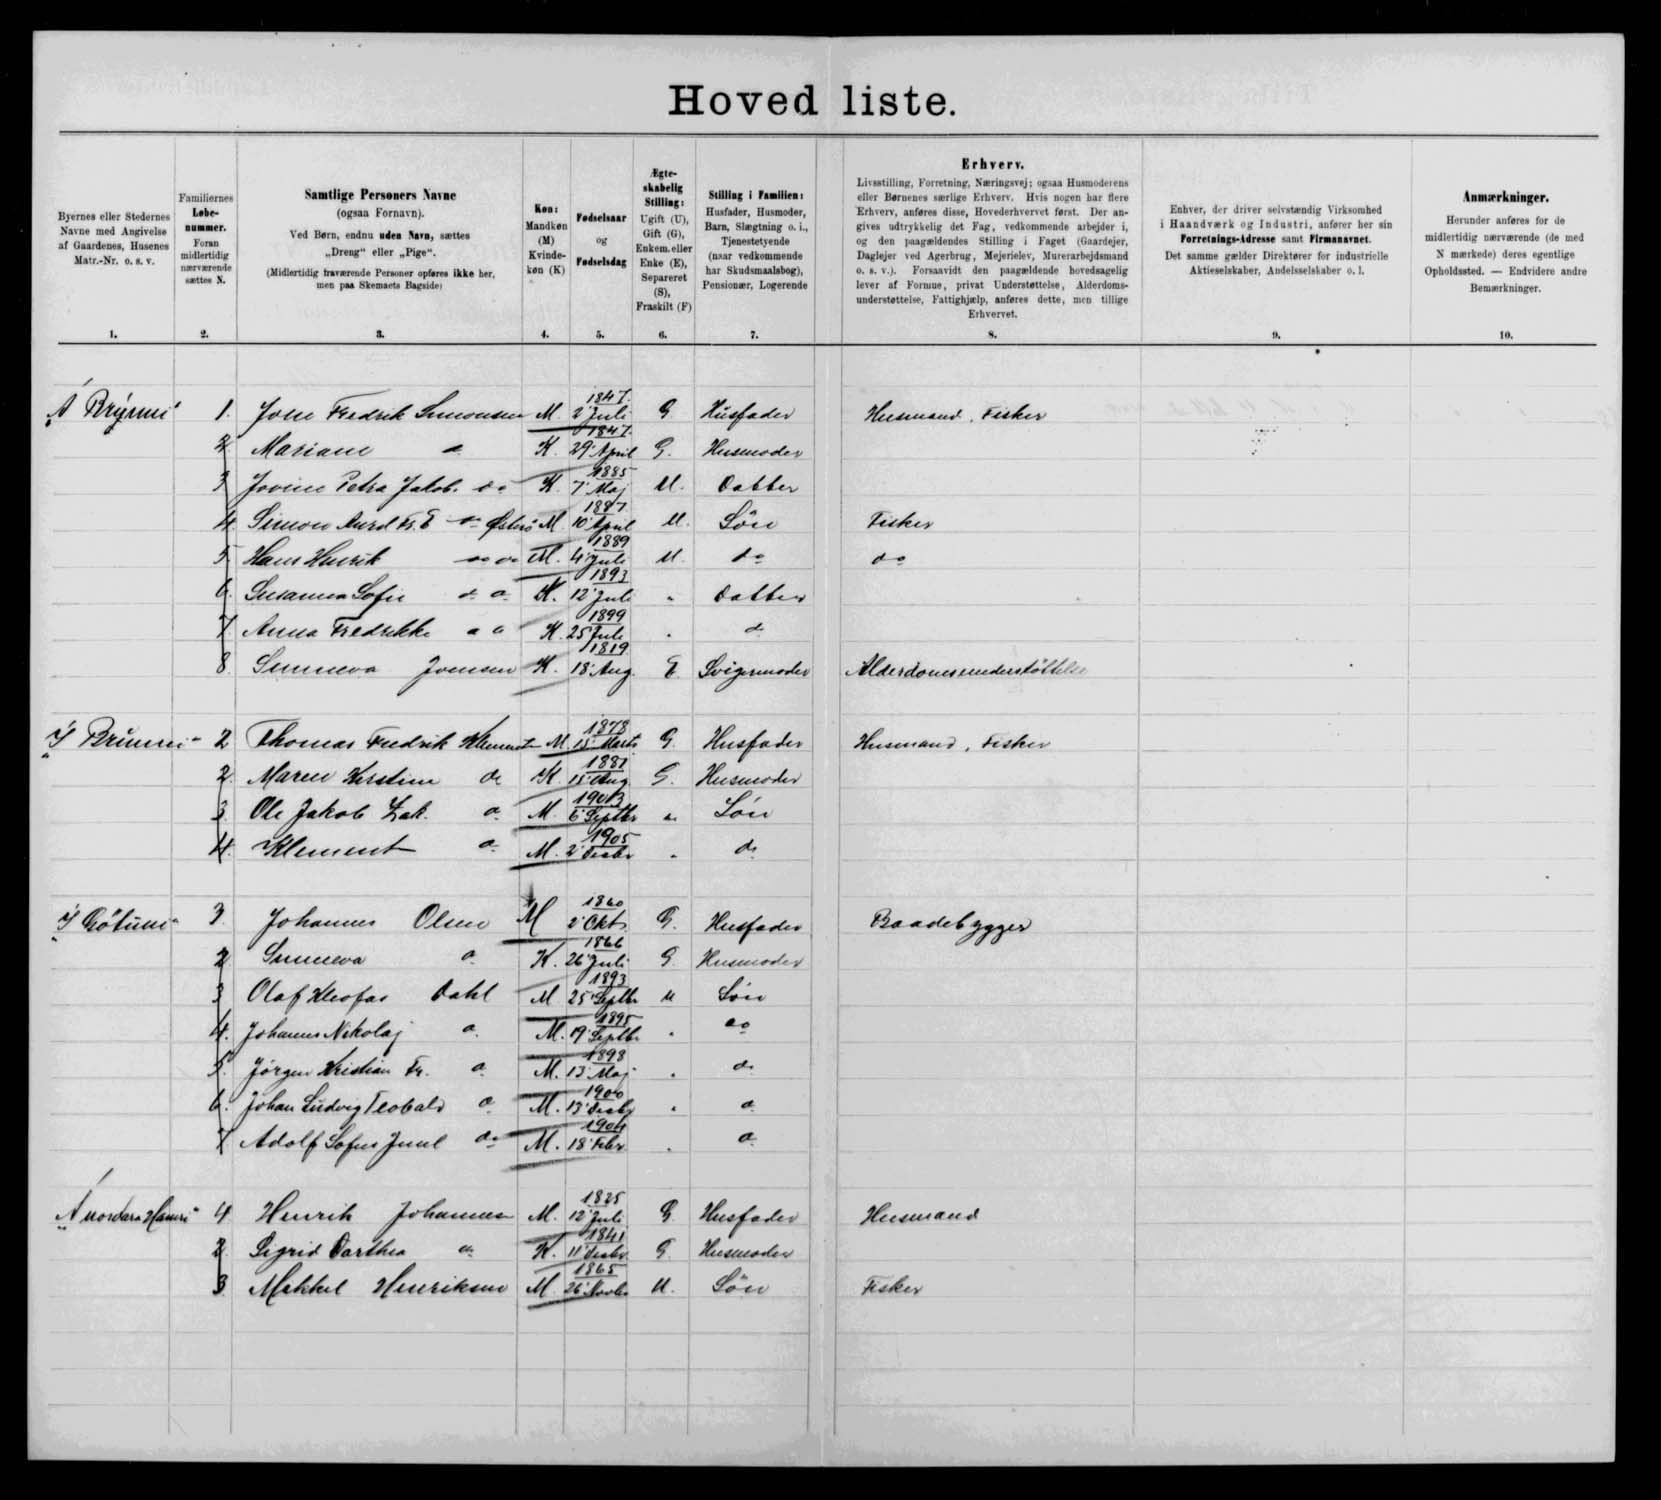 Hoved liste.
Byernes eller Stedernes Navne med Angivelse af Gaardenes, Husenes Matr.-Nr. o. s. v.
Familiernes Løbenummer. Foran midlertidig nærværende sættes N.
Samtlige Personers Navne (ogsaa Fornavn). Ved Børn, endnu uden Navn, sættes „Dreng“ eller „Pige“. (Midlertidig fraværende Personer opføres ikke her, men paa Skemaets Bagside)
Køn: Mandkøn (M) Kvindekøn (K)
Fødselsaar og Fødselsdag
Ægteskabelig Stilling: Ugift (U), Gift (G), Enkem. eller Enke (E), Separeret (S), Fraskilt (F)
Stilling i Familien: Husfader, Husmoder, Barn, Slægtning o. l., Tjenestetyende (naar vedkommende har Skudsmaalsbog), Pensionær, Logerende
Erhverv. Livsstilling, Forretning, Næringsvej; ogsaa Husmoderens eller Børnenes særlige Erhverv. Hvis nogen har flere Erhverv, anføres disse, Hovederhvervet først. Der angives udtrykkelig det Fag, vedkommende arbejder i, og den paagældendes Stilling i Faget (Gaardejer, Daglejer ved Agerbrug, Mejerielev, Murerarbejdsmand o. s. v.). Forsaavidt den paagældende hovedsagelig lever af Formue, privat Understøttelse, Alderdomsunderstøttelse, Fattighjælp, anføres dette, men tillige Erhvervet.
Enhver, der driver selvstændig Virksomhed i Haandværk og Industri, anfører her sin Forretnings-Adresse samt Firmanavnet. Det samme gælder Direktører for industrielle Aktieselskaber, Andelsselskaber o. l.
Anmærkninger. Herunder anføres for de midlertidig nærværende (de med N mærkede) deres egentlige Opholdssted. — Endvidere andre Bemærkninger.
1. 2. 3. 4. 5. 6. 7. 8. 9. 10.
1. Fredrik Simonsen M. 1847. 2' Juli G Husfader Husmand, Fisker
2 Mariane do K. 1847. 29' April G. Husmoder
3 Petra Jakob. do K. 1885 7' Maj U. Datter
4 Simon do M. 1887 10' April U. Søn Fisker
5 Hans Henrik do M. 1889 4' Juli U. do do
6. Susanna Sofie do K. 1893 12' Juli " Datter
7 Anna Fredrikke do K. 1899 25' Juli " do
8. Sunneva Joensen K. 1819 18' Aug. E Svigermoder Alderdomsunderstøttelse
2 Thomas Fredrik M. 1878 15' Marts G. Husfader Husmand, Fisker
2. Maren Kirstine do K. 1881 15' Aug G. Husmoder
3. Ole Jakob Zak. do M. 1903 6' Septbr " Søn
4. Klement do M. 1905 2' Desbr " do
3. Johannes Olsen M 1860 2' Okt. G. Husfader Baadebygger
2 Sunneva do K. 1866 26' Juli G Husmoder
3 Olaf Kleofas Dahl M 1893 25' Septbr U Søn
4. Johannes Nikolaj do M. 1895 19' Septbr " do
5. Jørgen Kristian Fr. do M. 1898 13' Maj " do
6. Johan Ludvig Teobald do M. 1900 13' Desbr " do
7 Adolf Sofus Juul do M. 1904 18' Febr " do
4 Henrik Johannesen M. 1825 12' Juli G. Husfader Husmand
2. Sigrid Darthea do K. 1841 11' Desbr G. Husmoder
3. Mikkel Henriksen M. 1865 26' Novbr U. Søn Fisker